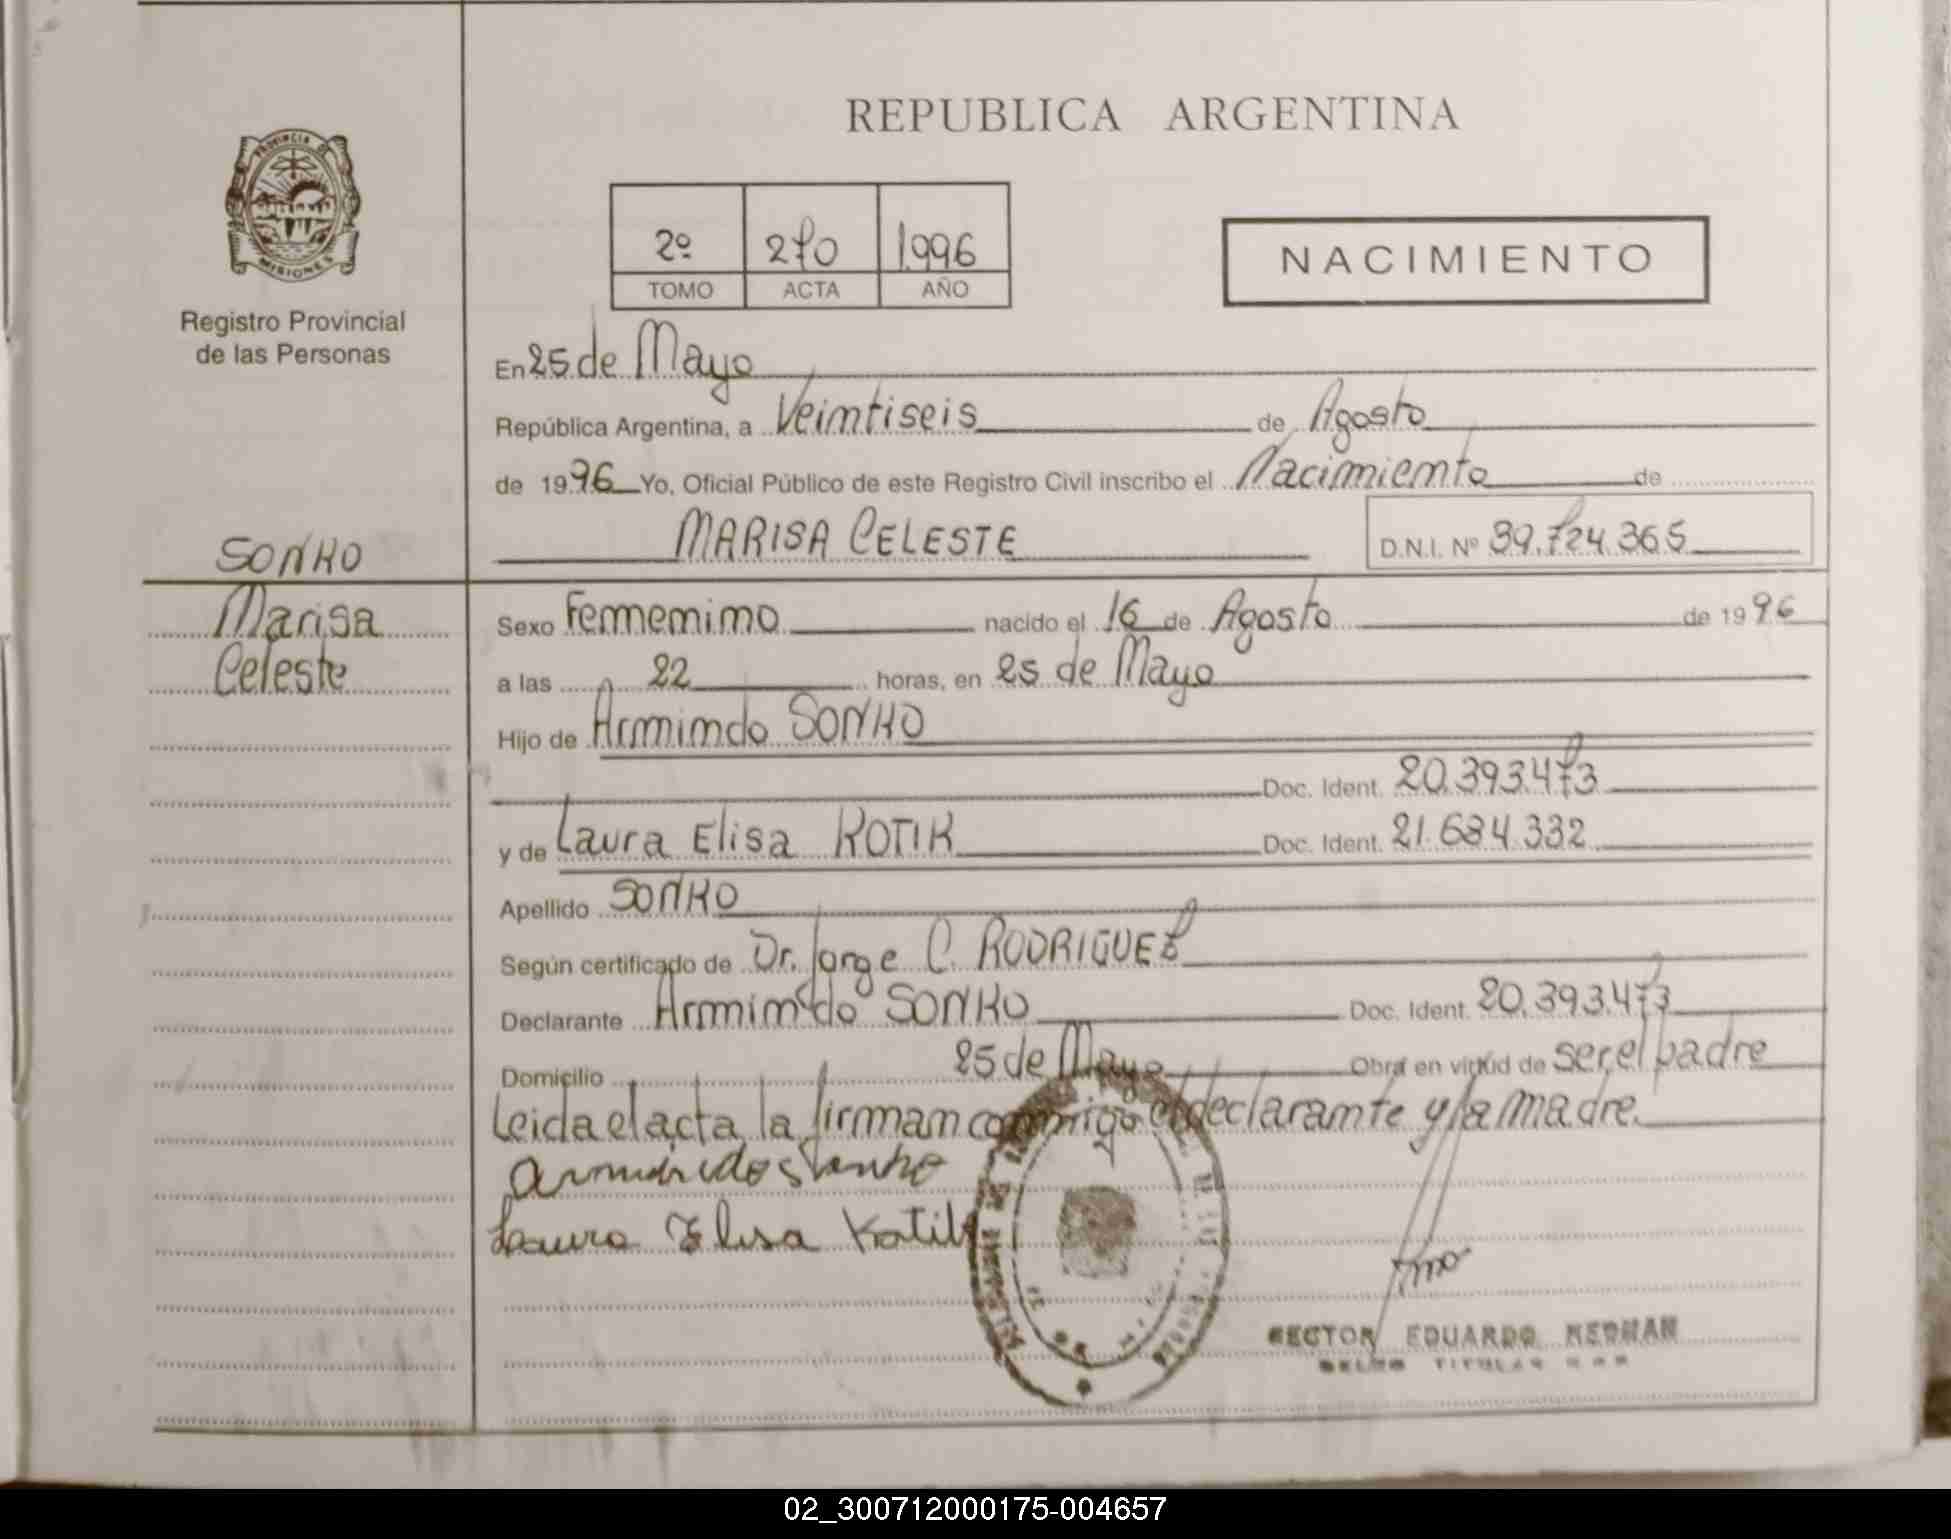 REPUBLICA ARGENTINA
PROVINCIA DE
MISIONES
Registro Provincial
de las Personas
2º 270 1.996
TOMO ACTA AÑO
NACIMIENTO
En 25 de Mayo
República Argentina, a Veimtiseis de Agosto
de 1996 Yo, Oficial Público de este Registro Civil inscribo el Nacimiento de
MARISA CELESTE D.N.I. Nº 39.724.365
SONKO
Marisa
Celeste
Sexo Femmemimo nacido el 16 de Agosto de 1996
a las 22 horas, en 25 de Mayo
Hijo de Armimdo SONKO
Doc. Ident. 20.393.473
y de Laura Elisa KOTIK Doc. Ident. 21.684.332
Apellido SONKO
Según certificado de Dr. Jorge C. RODRIGUEZ
Declarante Armimdo SONKO Doc. Ident. 20.393.473
Domicilio 25 de Mayo Obra en virtud de ser el padre
Leida el acta, la firmam commigo el declarante y la madre.
Laura Elisa Kotik
HECTOR EDUARDO
TITULAR
02_300712000175-004657